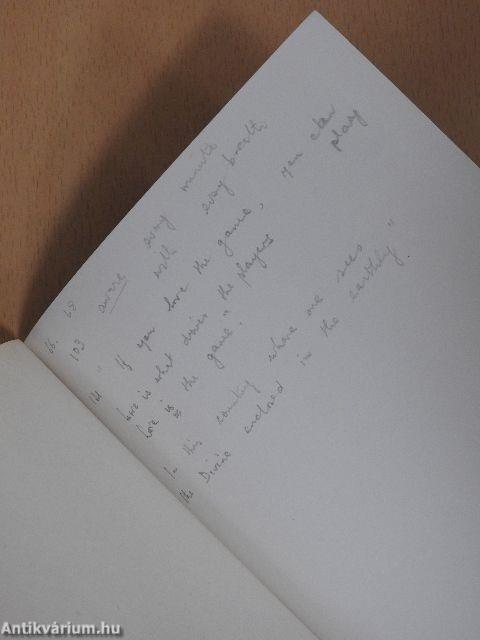 66. 68
103 aware every minute
with every breath
141 "If you love the game, you can play
Love is what drives the players
Love is the game."
In this country where one sees
the Divine enclosed in the earthly"
Antikvárium.hu